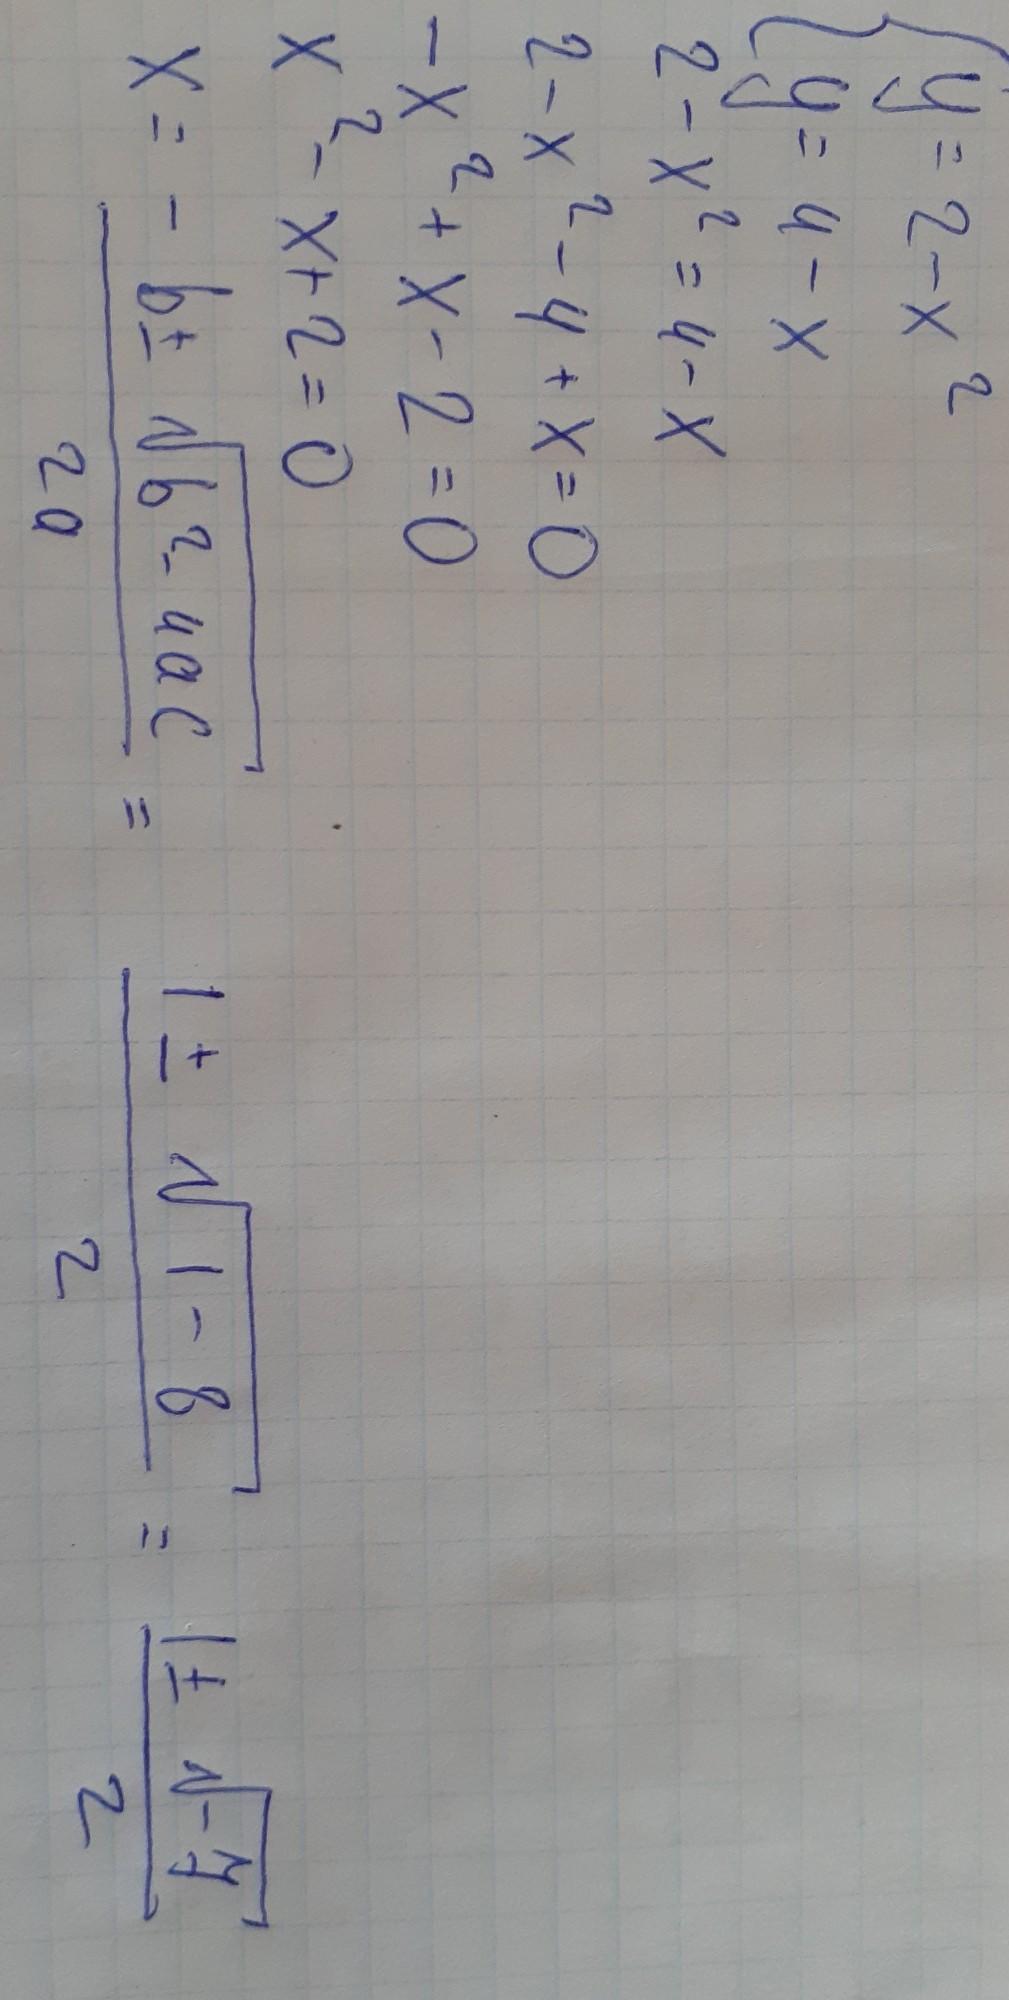 { y = 2 - x²
{ y = 4 - x
2 - x² = 4 - x
2 - x² - 4 + x = 0
-x² + x - 2 = 0
x² - x + 2 = 0
x = (-b ± √(b² - 4ac)) / 2a = (1 ± √(1 - 8)) / 2 = (1 ± √(-7)) / 2